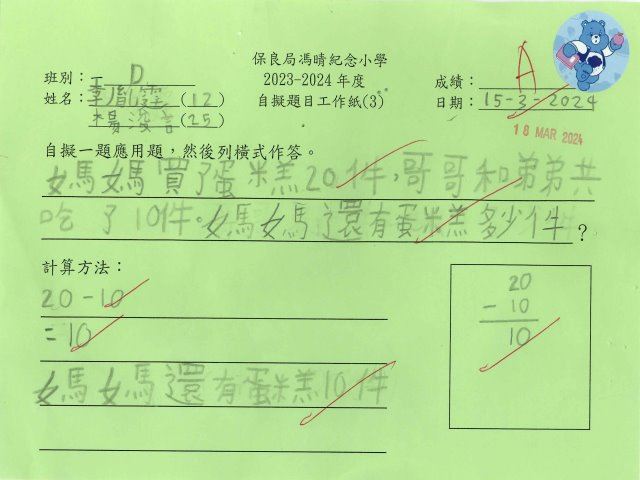 保良局馮晴紀念小學
2023-2024年度
自擬題目工作紙(3)
班別：一D
姓名：(12)
楊浚言(25)
成績：A
日期：15-3-2024
18 MAR 2024
自擬一題應用題，然後列橫式作答。
媽媽買了蛋糕20件,哥哥和弟弟共
吃了10件。媽媽還有蛋糕多少件？
計算方法：
20-10
=10
媽媽還有蛋糕10件
20
- 10
10